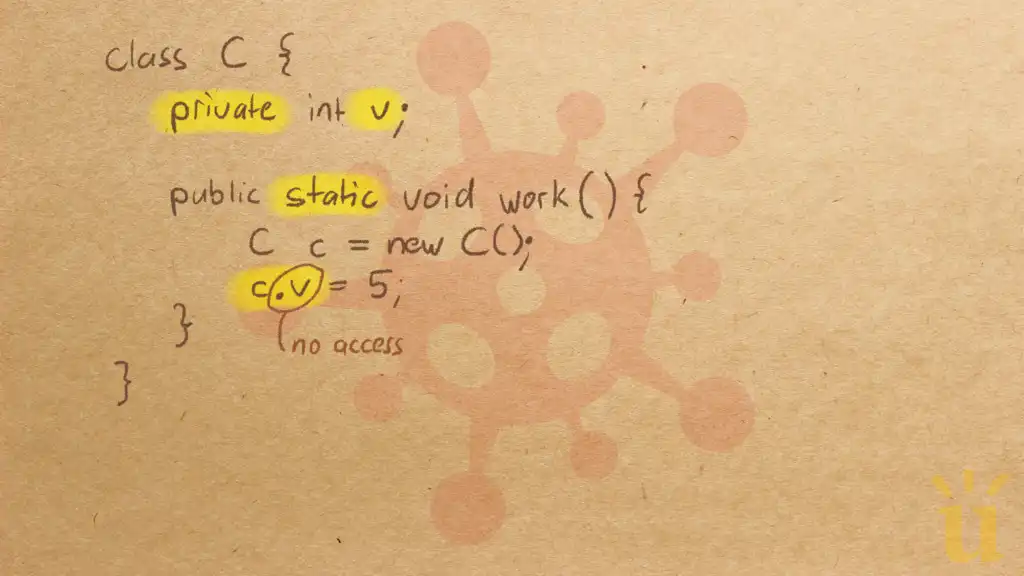 class C {
private int v;
public static void work() {
C c = new C();
c.v = 5;
no access
}
}
ü